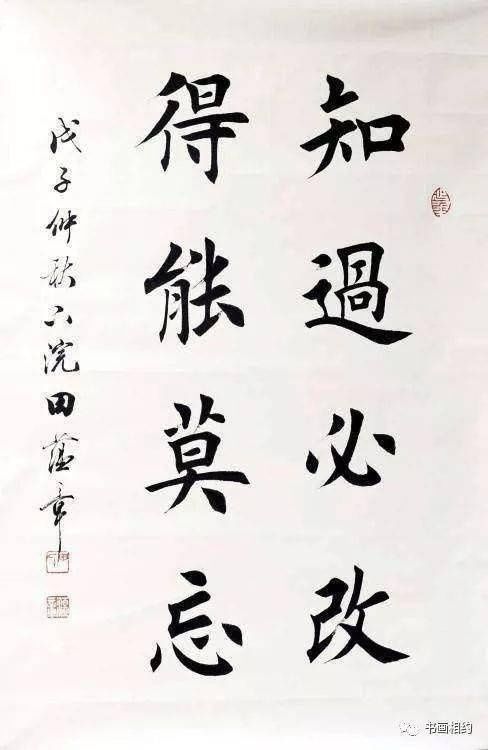 知過必改
得能莫忘
戊子仲秋下浣田蘊章
书画相约